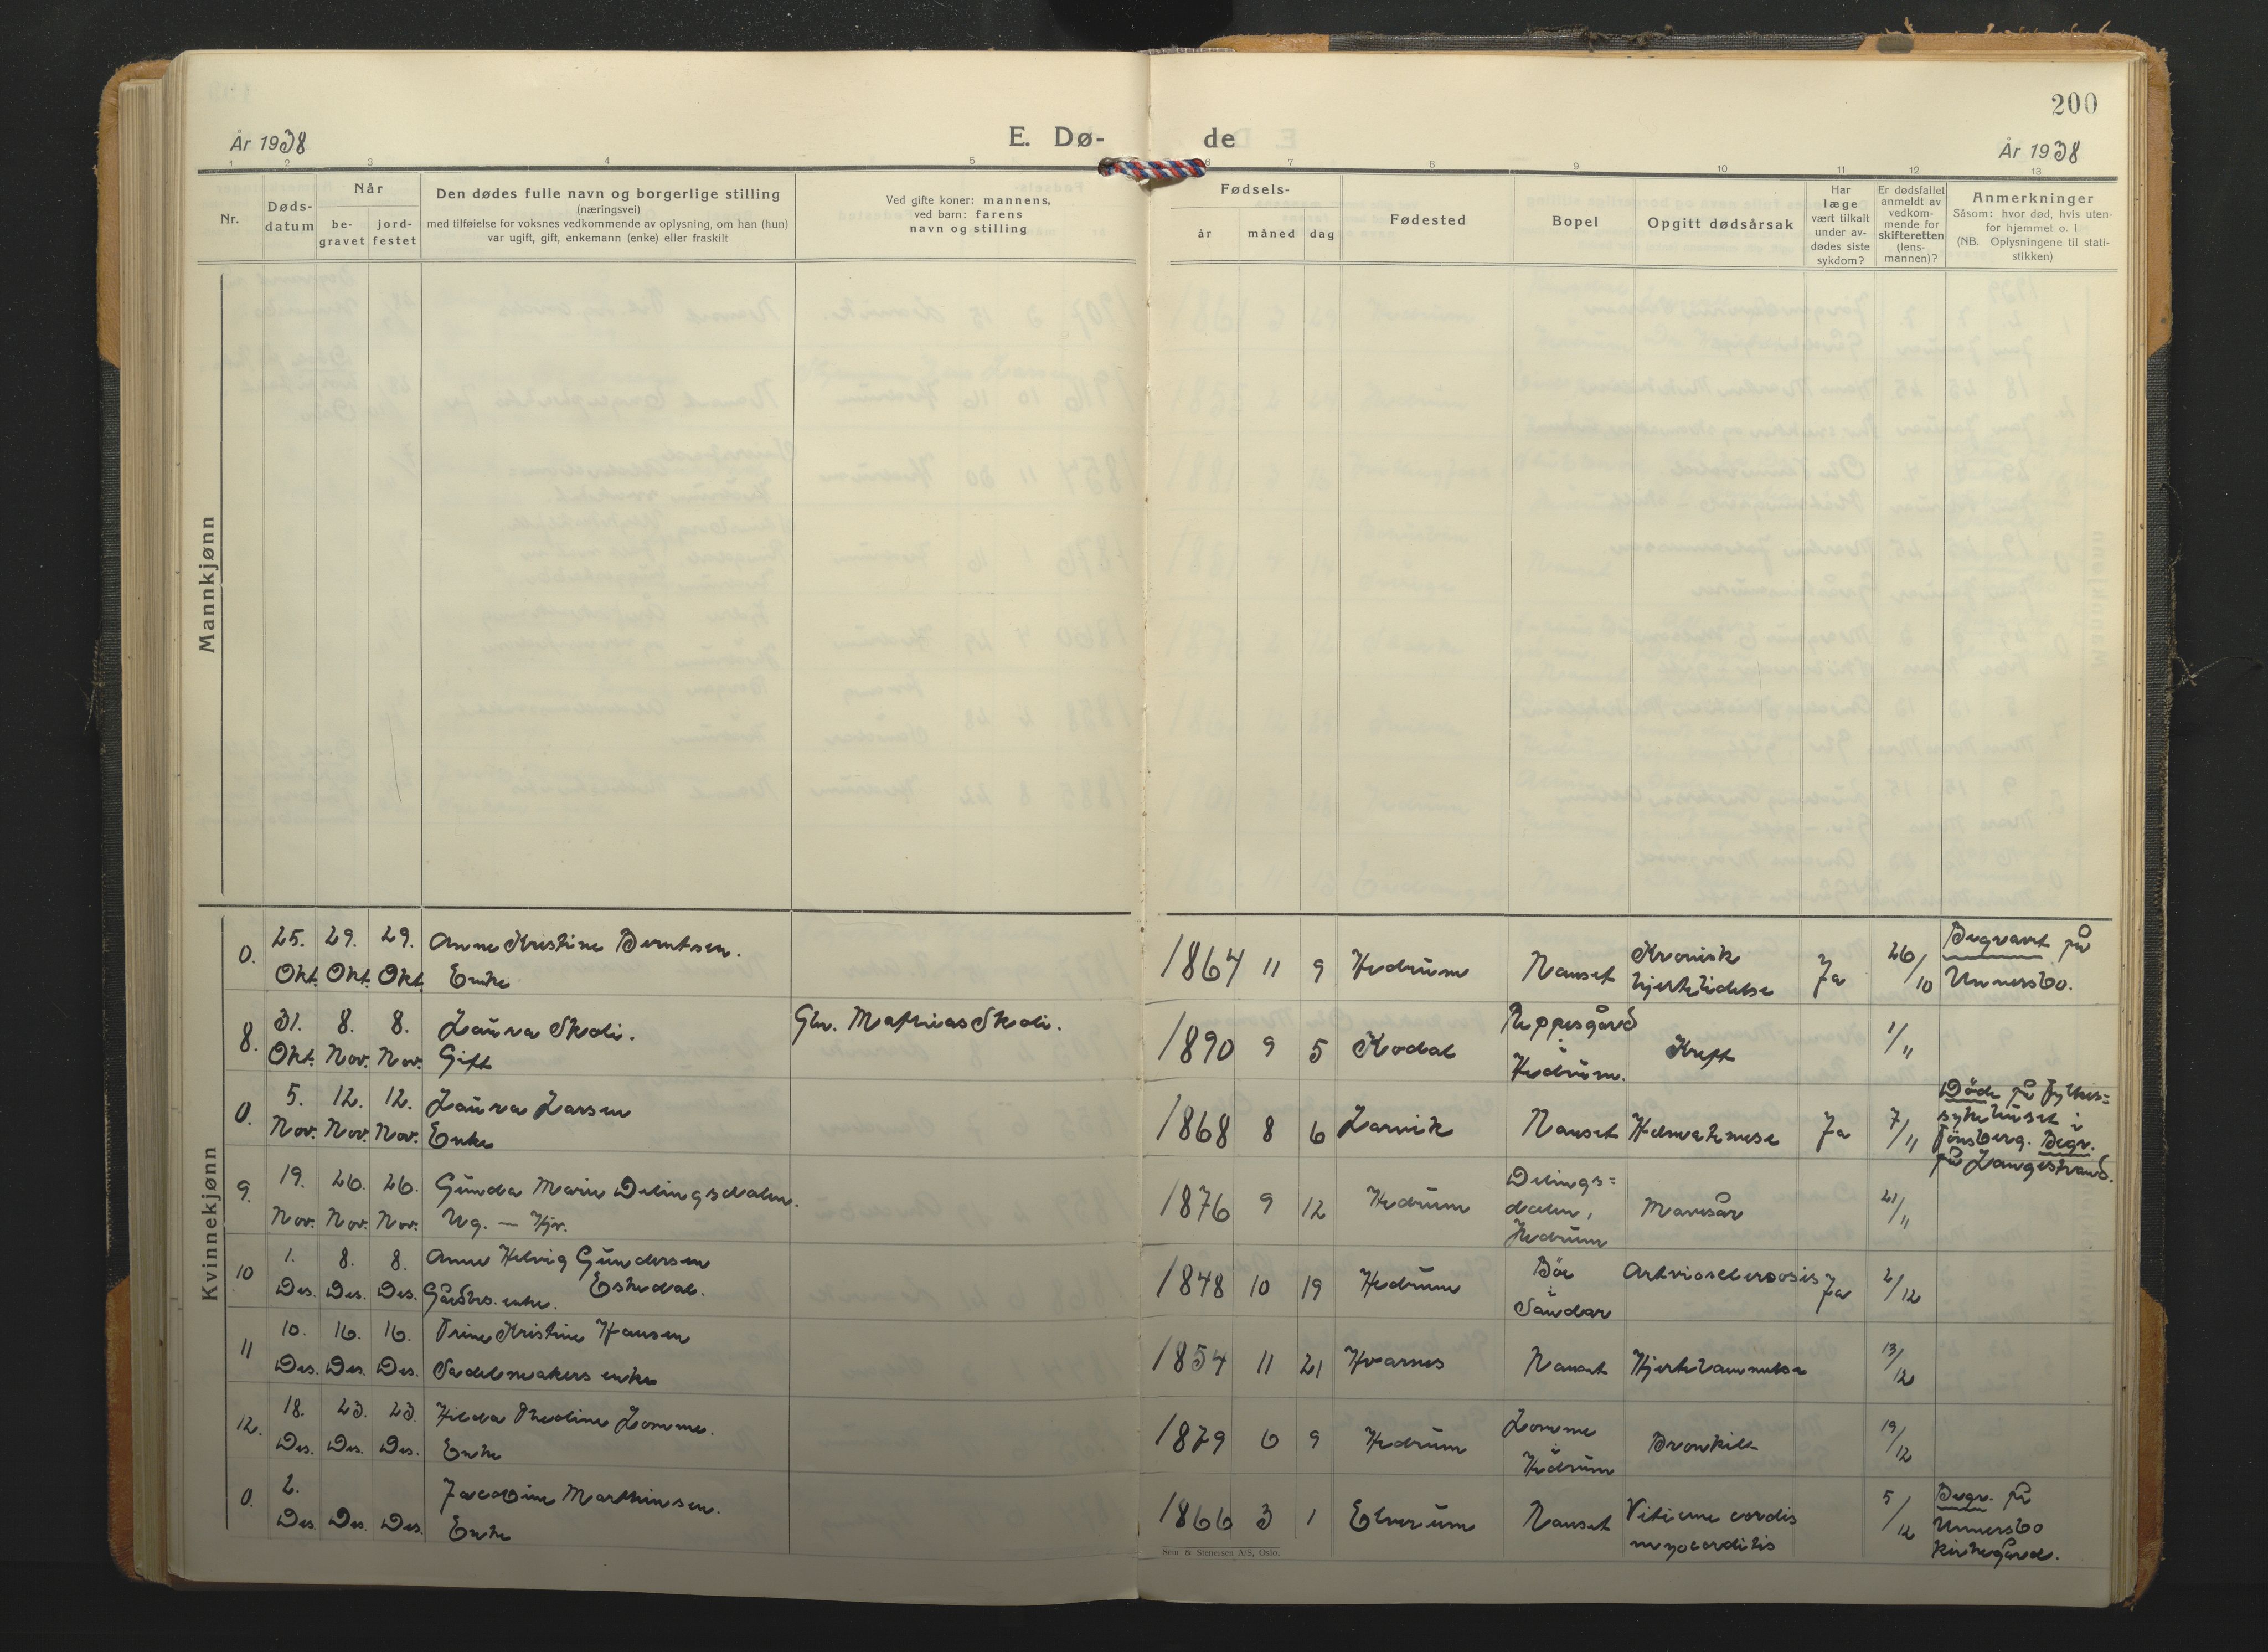 200
År 1938
E. Dø-
de
År 1938
1 2 3 4 5 6 7 8 9 10 11 12 13
Nr.
Døds-
datum
Når
be-
gravet
jord-
festet
Den dødes fulle navn og borgerlige stilling
(næringsvei)
med tilføielse for voksnes vedkommende av oplysning, om han (hun)
var ugift, gift, enkemann (enke) eller fraskilt
Ved gifte koner: mannens,
ved barn: farens
navn og stilling
Fødsels-
år måned dag
Fødested
Bopel
Opgitt dødsårsak
Har
læge
vært tilkalt
under av-
dødes siste
sykdom?
Er dødsfallet
anmeldt av
vedkom-
mende for
skifteretten
(lens-
mannen)?
Anmerkninger
Såsom: hvor død, hvis uten-
for hjemmet o. l.
(NB. Oplysningene til stati-
stikken)
Mannkjønn
Kvinnekjønn
0. 25. 29. 29. Anne Kristine Berntsen.
Okt. Okt. Okt. Enke
1864 11 9 Hedrum Nanset Kronisk
hjertelidelse Ja 26/10 Begravet på
Unnersbo.
8. 31. 8. 8. Laura Skoli. Gbr. Mathias Skoli.
Okt. Nov. Nov. Gift
1890 9 5 Kodal
i
Hedrum. Kreft 1/11
0. 5. 12. 12. Laura Larsen
Nov. Nov. Nov. Enke
1868 8 6 Larvik Nanset Ja 7/11 Døde på fylkes=
sykehuset i
Tønsberg. Begr.
på Langestrand.
9. 19. 26. 26. Gunda Marie Delingsdalen.
Nov. Nov. Nov. Ug. — Hjv.
1876 9 12 Hedrum Delings=
dalen,
Hedrum Mavesår 21/11
10 1. 8. 8. Anne Helvig Gundersen
Des. Des. Des. Gårdbr. enke. Eskedal.
1848 10 19 Hedrum Bøe
i
Sandar Artriosclerosis Ja 2/12
11 10. 16. 16. Trine Kristine Hansen
Des. Des. Des. Sadelmakers enke
1854 11 21 Hvarnes Nanset Hjertelammelse 13/12
12. 18. 23. 23. Hilda Theoline Lomme.
Des. Des. Des. Enke
1879 6 9 Hedrum Lomme
i
Hedrum Bronkitt 19/12
0. 2. Jacobine Marthinsen.
Des. Des. Des. Enke
1866 3 1 Elverum Nanset Vitieme cordis
myocorditis 5/12 Begr. på
Unnersbo
kirkegård.
Sem & Stenersen A/S, Oslo.